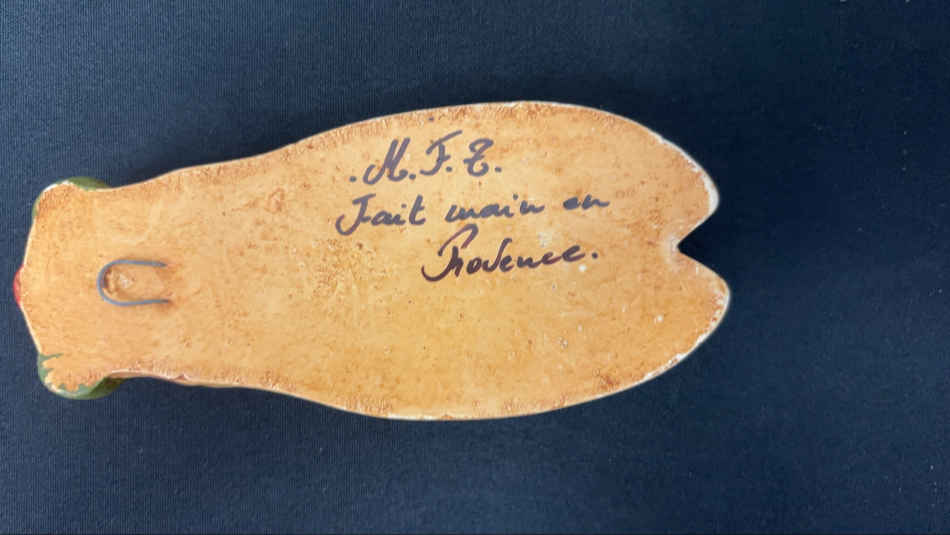 .M.F.Z.
Fait main en
Provence.